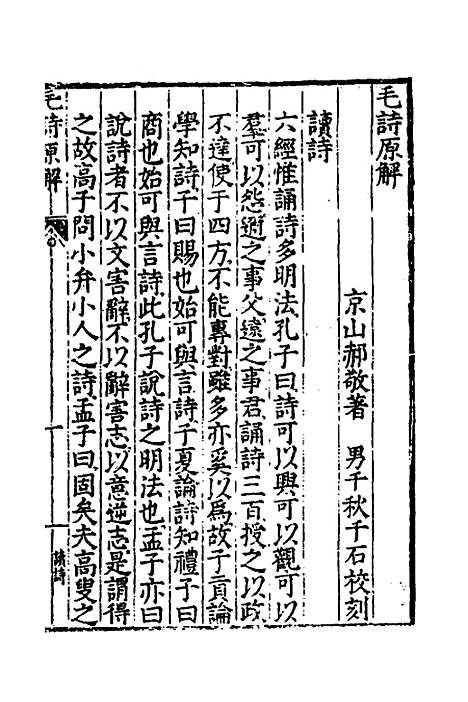 毛詩原解
京山郝敬著　男千秋千石校刻
讀詩
六經惟誦詩多明法孔子曰詩可以興可以觀可以
羣可以怨邇之事父遠之事君誦詩三百授之以政
不達使于四方不能專對雖多亦奚以爲故子貢論
學知詩子曰賜也始可與言詩子夏論詩知禮子曰
商也始可與言詩此孔子說詩之明法也孟子亦曰
說詩者不以文害辭不以辭害志以意逆志是謂得
之故高子問小弁小人之詩孟子曰固矣夫高叟之
毛詩原解
讀詩
一